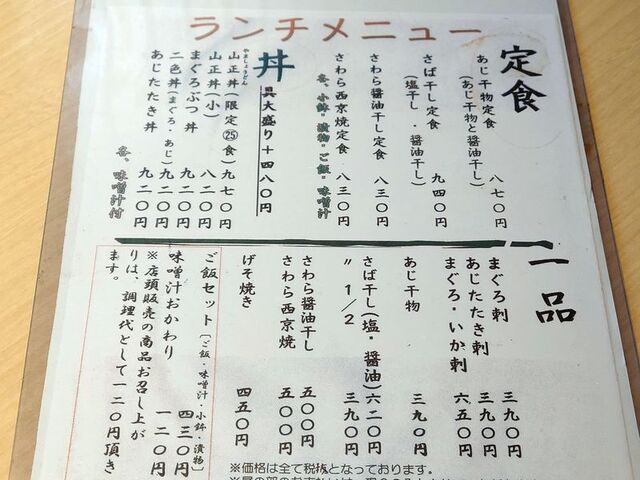 ランチメニュー
定食
あじ干物定食
(あじ干物と醤油干し) 八七〇円
さば干し定食
(塩干し・醤油干し) 九四〇円
さわら醤油干し定食 八三〇円
さわら西京焼定食 八三〇円
各、小鉢・漬物・ご飯・味噌汁
丼
具大盛り+四八〇円
やましょうどん
山正丼(限定㉕食) 九七〇円
山正丼(小) 八二〇円
まぐろぶつ丼 九二〇円
二色丼(まぐろ・あじ) 九二〇円
あじたたき丼 九二〇円
各、味噌汁付
一品
まぐろ刺 三九〇円
あじたたき刺 三九〇円
まぐろ・いか刺 六五〇円
あじ干物 三九〇円
さば干し(塩・醤油) 六二〇円
〃 1/2 三九〇円
さわら醤油干し 五〇〇円
さわら西京焼 五〇〇円
げそ焼き 四五〇円
ご飯セット(ご飯・味噌汁・小鉢・漬物) 四三〇円
味噌汁おかわり 一二〇円
※店頭販売の商品お召し上が
りは、調理代として一二〇円頂き
ます。
※価格は全て税抜となっております。